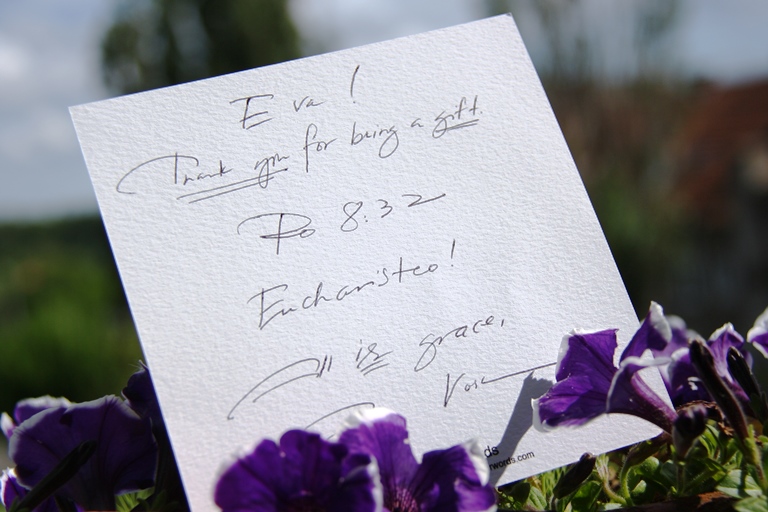 Eva!
Thank you for being a gift.
Ro 8:32
Eucharisteo!
All is grace,
ds
rwords.com